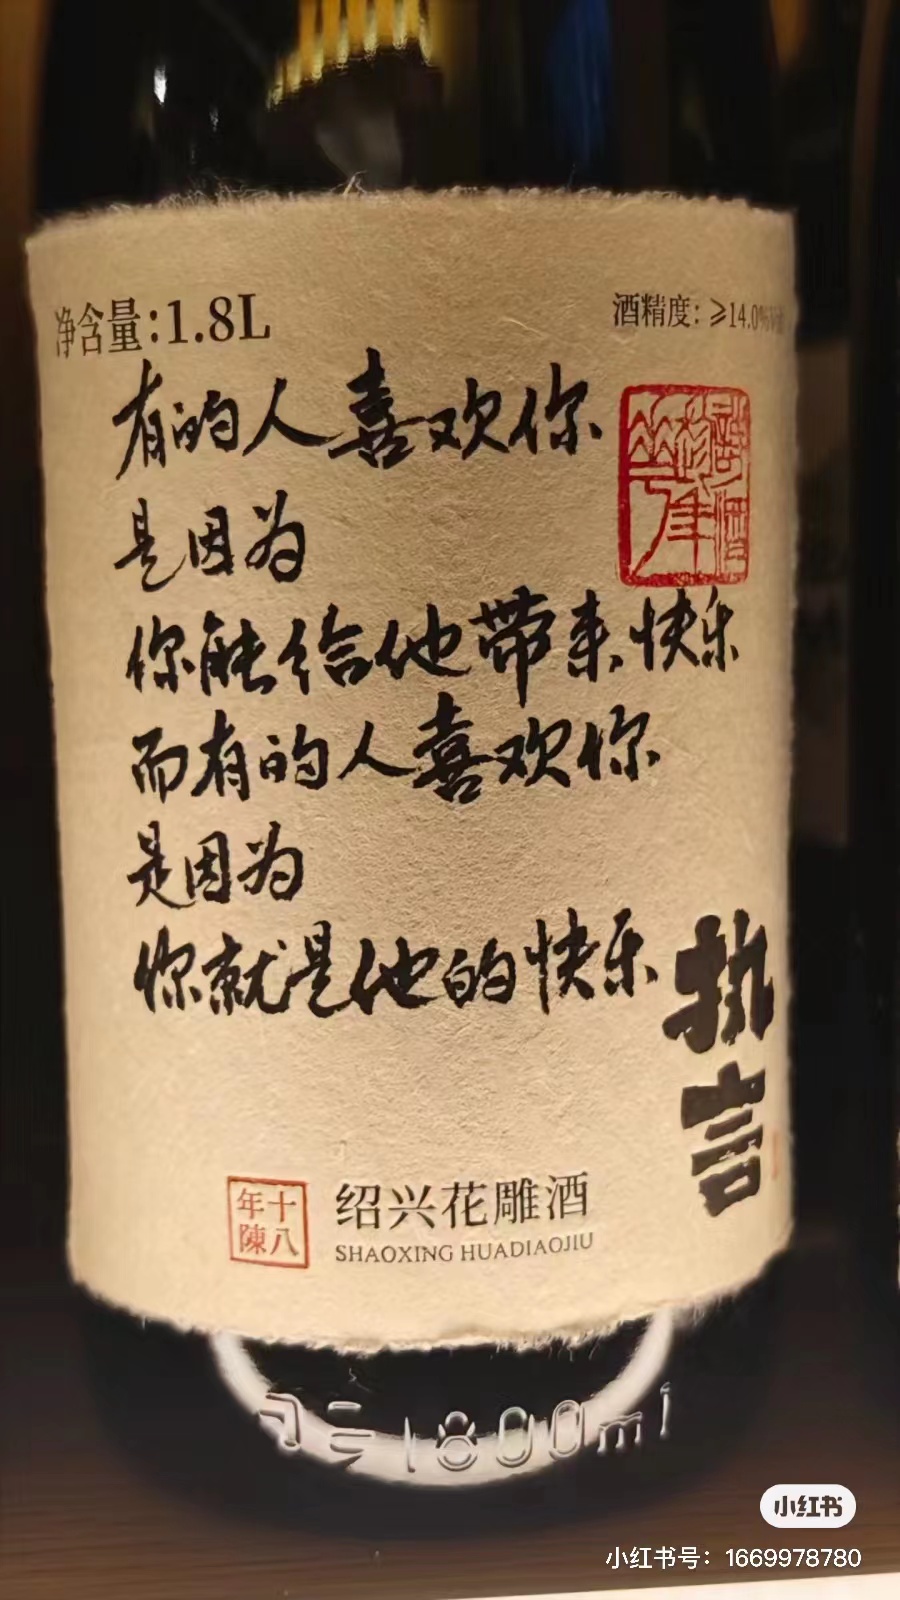 净含量:1.8L
酒精度: ≥14.0%vol
有的人喜欢你
是因为
你能给他带来快乐
而有的人喜欢你
是因为
你就是他的快乐
执言
十八
年陳
绍兴花雕酒
SHAOXING HUADIAOJIU
1800ml
小红书
小红书号：1669978780